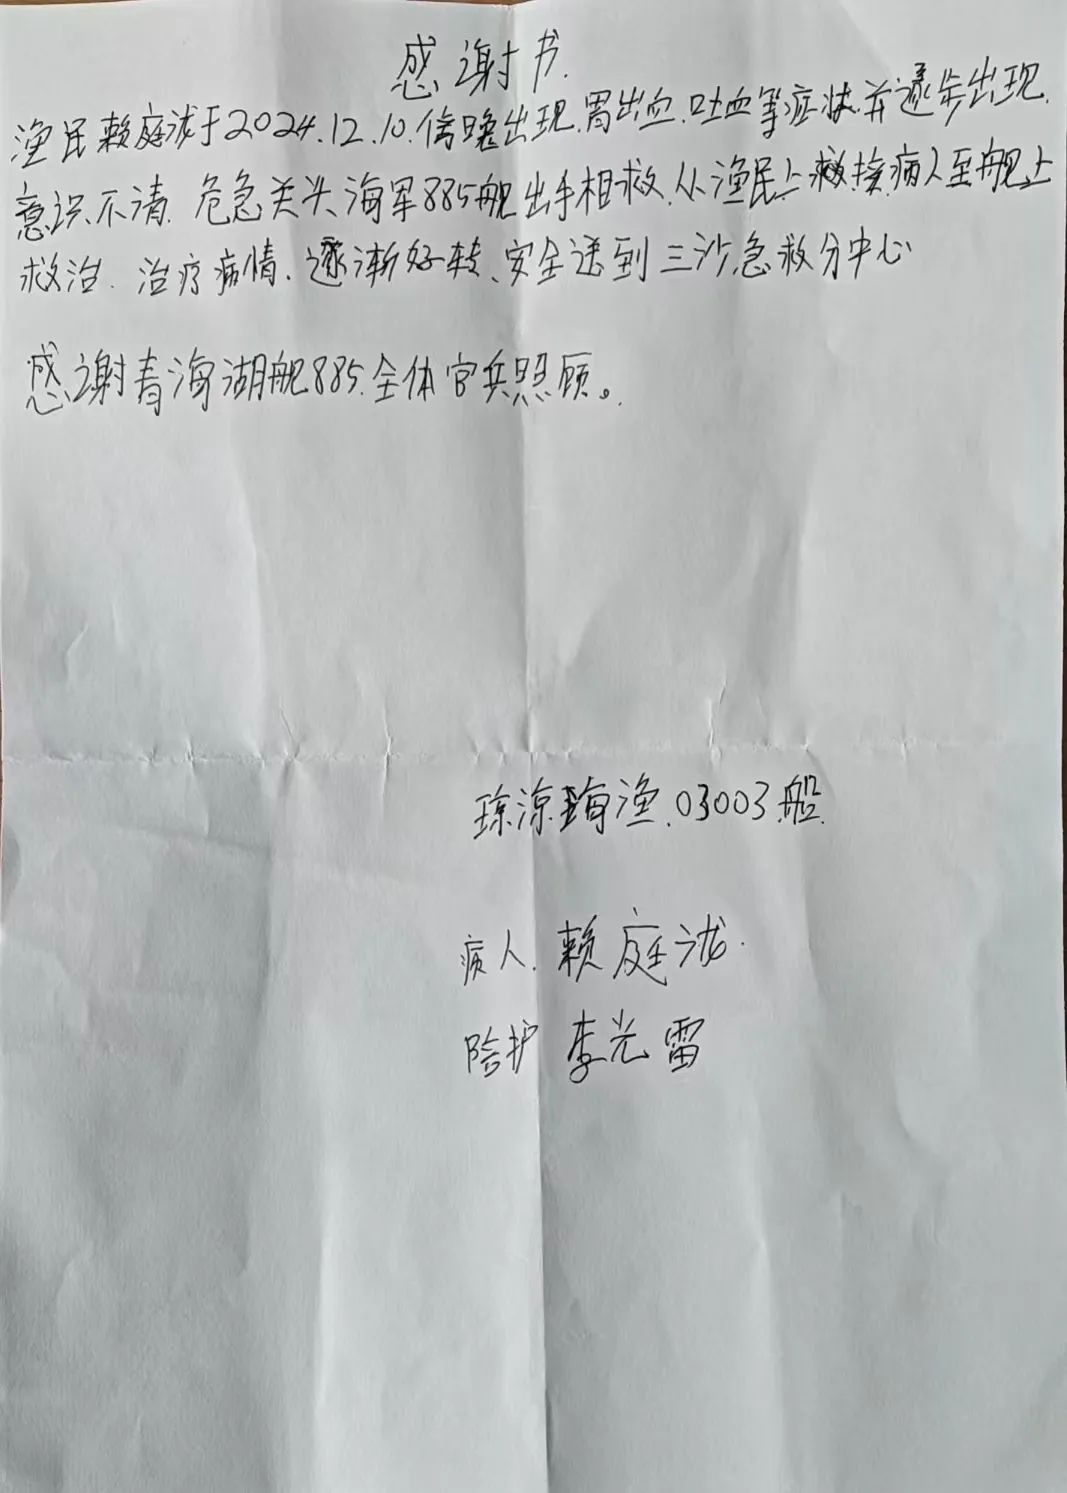 感谢书.
渔民赖庭泷于2024.12.10.傍晚出现.胃出血.吐血等症状.并逐步出现.
意识不清.危急关头海军885舰出手相救.从渔民上救援病人至舰上
救治.治疗病情.逐渐好转、安全送到三沙急救分中心
感谢青海湖舰885.全体官兵照顾。
琼琼海渔.03003.船.
病人.赖庭泷.
陪护 李光雷